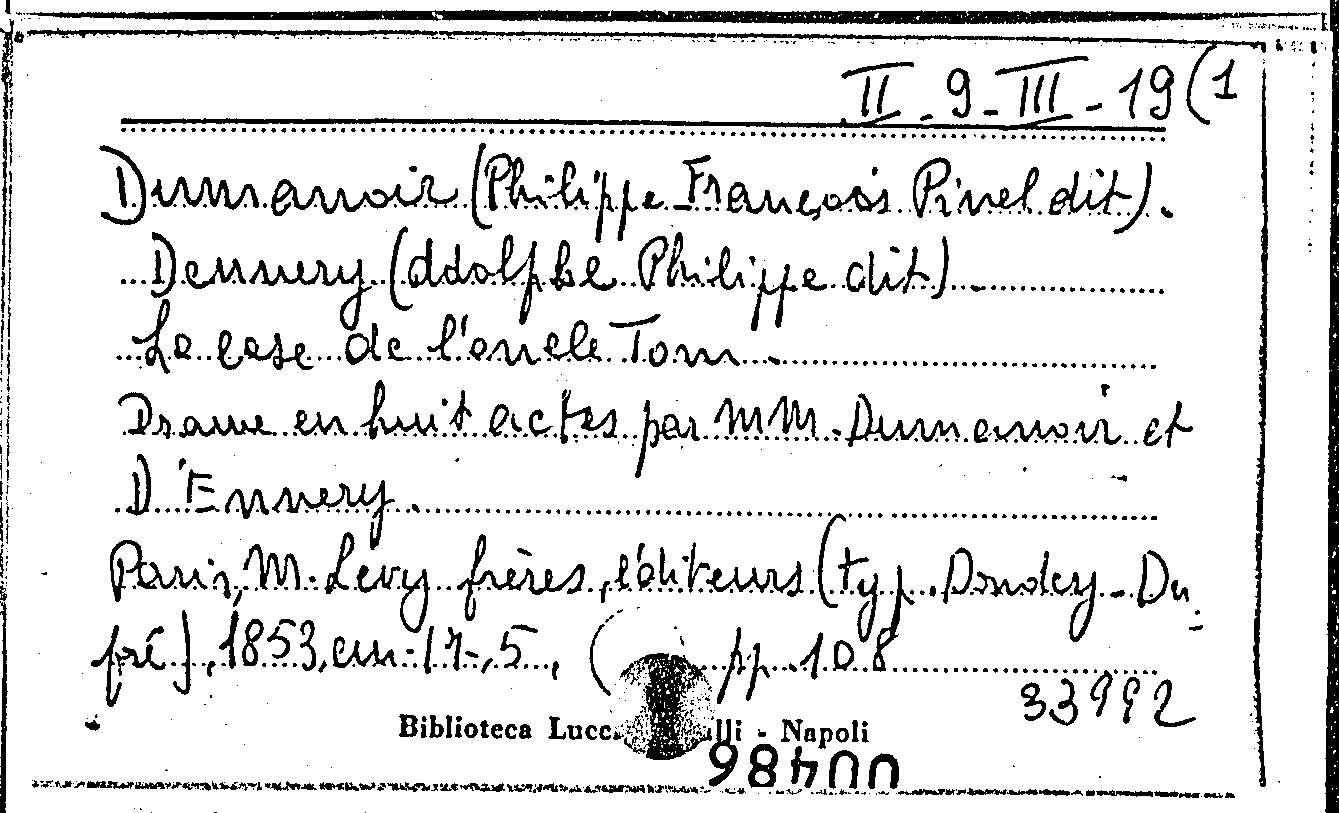 II-9-III-19(1
Dumanoir (Philippe François Pinel dit).
Dennery (Adolphe Philippe dit).
La case de l'oncle Tom.
Drame en huit actes par MM. Dumanoir et
D'Ennery.
Paris, M. Lévy frères, éditeurs (typ. Dondey-Du-
pré), 1853, cm. 17,5, pp. 108
33992
Biblioteca Lucc lli - Napoli
00486